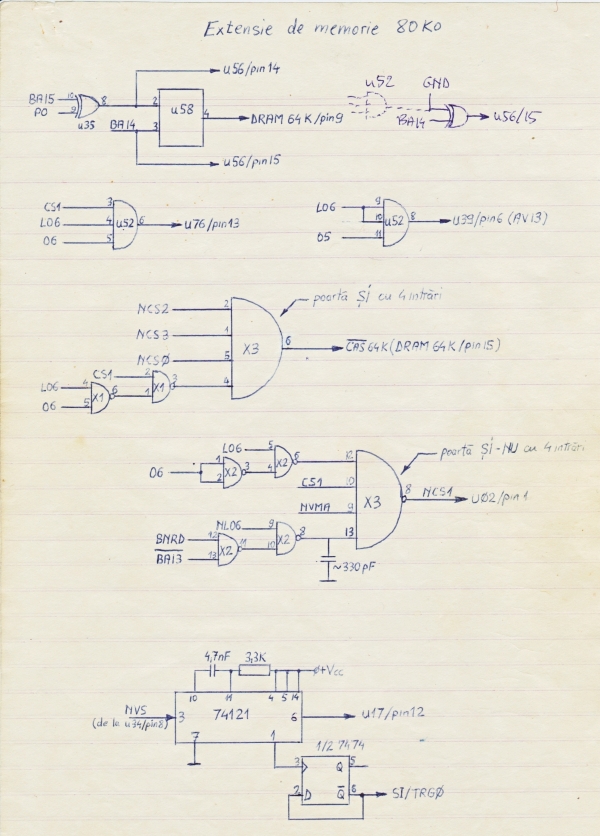 Extensie de memorie 80Ko
u56/pin14
BA15 10 8 2 u58 4 DRAM 64K/pin9
P0 9 u35 BA14 3
u56/pin15
u52 GND
BA14 u56/15
CS1 3
L06 4 u52 6 u76/pin13
06 5
L06 9
10 u52 8 u39/pin6 (AV13)
05 11
poartă ȘI cu 4 intrări
NCS2 2
NCS3 1 X3 6 CAS 64K (DRAM 64K/pin15)
NCSØ 5
CS1 2 X1 3 4
L06 4 X1 6 1
06 5
poartă ȘI-NU cu 4 intrări
L06 5 X2 6 12
06 1 2 X2 3 4
CS1 10 X3 8 NCS1 u02/pin1
NVMA 9
NL06 9 X2 8 13
BNRD 12 X2 11 10
BA13 13
~330pF
4,7nF 3,3K +Vcc
10 11 4 5 14
NVS 3 74121 6 u17/pin12
(de la u34/pin8)
7 1
1/2 7474
3 Q 5
2 D Q 6 SI/TRGØ